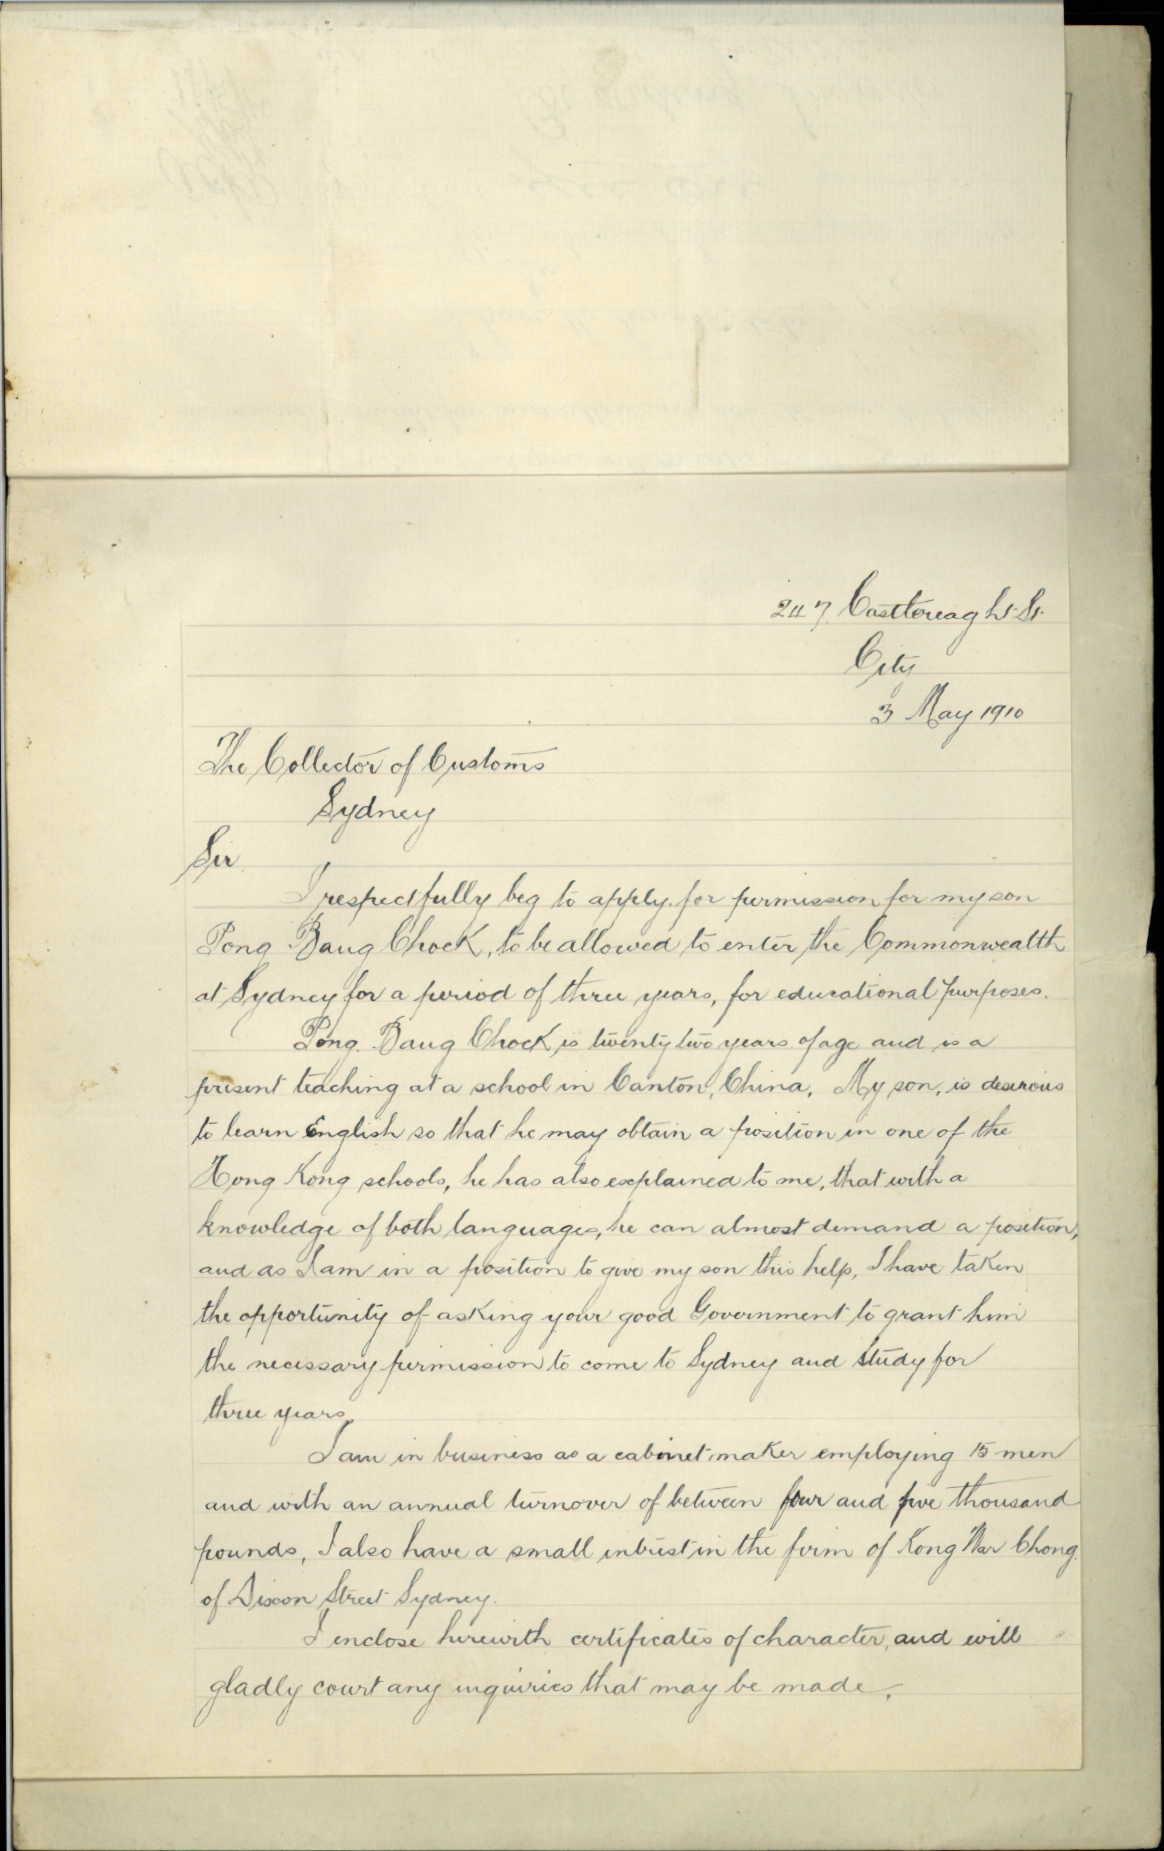 247 Castlereagh St.
City
3 May 1910
The Collector of Customs
Sydney
Sir
I respectfully beg to apply for permission for my son
Pong Baug Chock, to be allowed to enter the Commonwealth
at Sydney for a period of three years, for educational purposes.
Pong Baug Chock is twenty two years of age and is a
present teaching at a school in Canton, China. My son, is desirous
to learn English so that he may obtain a position in one of the
Hong Kong schools, he has also explained to me, that with a
knowledge of both languages, he can almost demand a position,
and as I am in a position to give my son this help, I have taken
the opportunity of asking your good Government to grant him
the necessary permission to come to Sydney and study for
three years.
I am in business as a cabinet maker employing 15 men
and with an annual turnover of between four and five thousand
pounds, I also have a small intrest in the firm of Kong War Chong
of Dixon Street Sydney.
I enclose herewith certificates of character, and will
gladly court any inquiries that may be made.